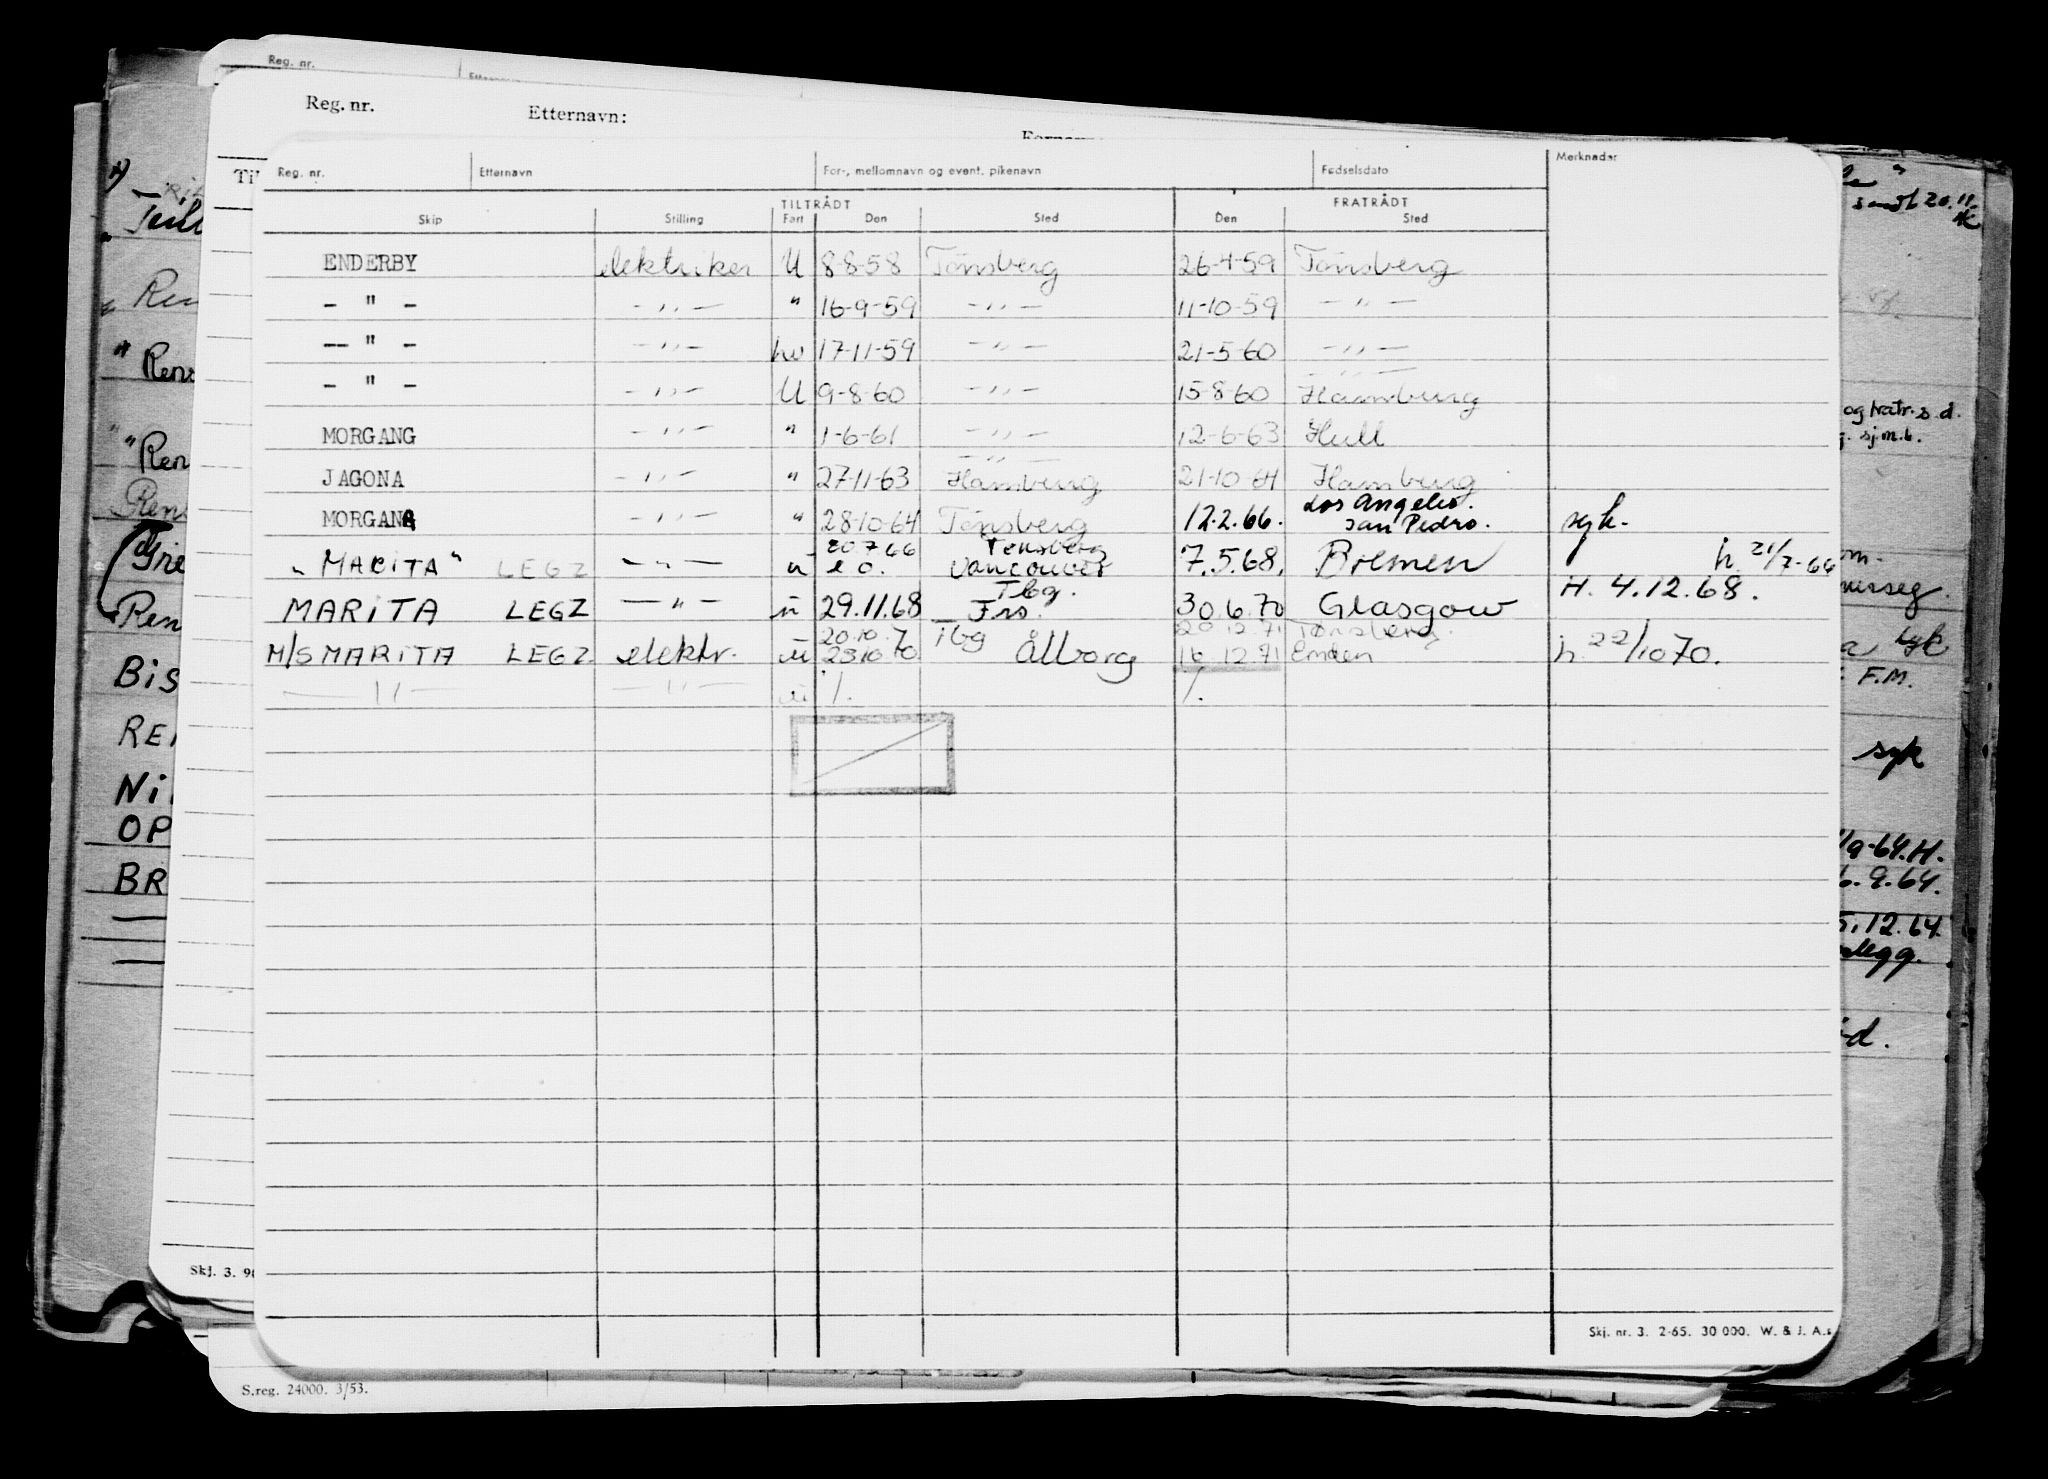 Reg. nr.
Reg. nr. Etternavn:
Reg. nr. Etternavn For-, mellomnavn og event. pikenavn Fødselsdato Merknader
TILTRÅDT FRATRÅDT
Skip Stilling Fart Den Sted Den Sted
ENDERBY elektriker U 8-8-58 Tönsberg 26-4-59 Tönsberg
- " - - " - " 16-9-59 - " - 11-10-59 - " -
- " - - " - hv 17-11-59 - " - 21-5-60 - " -
- " - - " - U 9-8-60 - " - 15-8-60 Hamburg
MORGANG - " - " 1-6-61 - " - 12-6-63 Hull
JAGONA - " - " 27-11-63 Hamburg 21-10-64 Hamburg
MORGANA - " - " 28-10-64 Tönsberg 12.2.66. Los Angeles. San Pedro. syk.
20.7 66 Tønsberg
"MARITA" LEGZ - " - u Vancouver 7.5.68. Bremen h. 21/7-66
MARITA LEGZ - " - u 29.11.68 Tbg. Frs. 30.6.70 Glasgow H. 4.12.68.
20.10.7 Tbg 20 12.71 Tønsberg.
M/S MARITA LEGZ. elektr. u 23 10 70. Ålborg 16 12 71 Emden h. 22/10 70.
- " - - " - u /. /.
Skj. nr. 3. 2-65. 30 000. W. & J. A.s
Skj. 3.
S.reg. 24000. 3/53.
Bis
Ni
OP
BR
sendt 20.11.
og fratr. s.d.
sj.m.b.
syk
F.M.
syk
9-64.H.
6.9.64.
5.12.64.